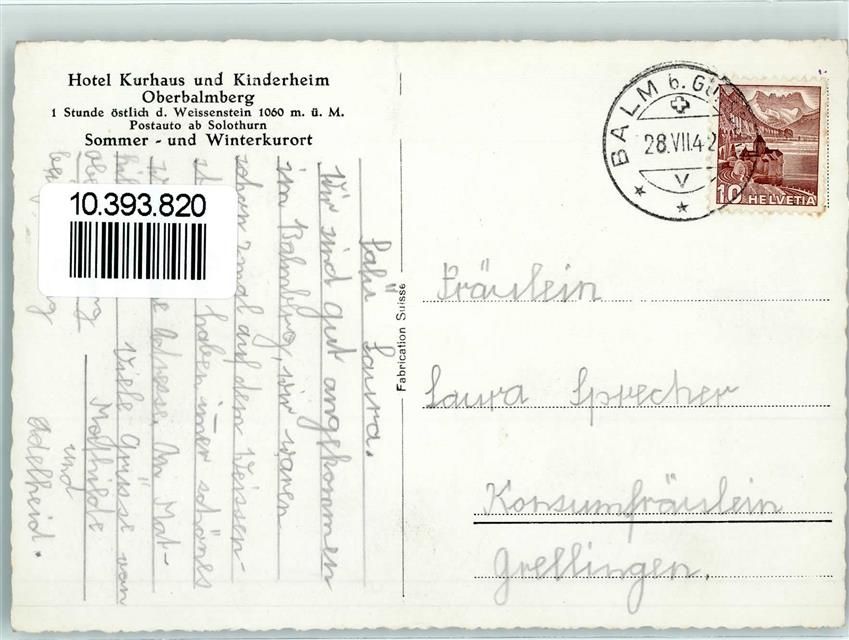 Hotel Kurhaus und Kinderheim
Oberbalmberg
1 Stunde östlich d. Weissenstein 1060 m. ü. M.
Postauto ab Solothurn
Sommer - und Winterkurort
10.393.820
BALM b. GÜ
28.VII.42
V
10 HELVETIA
Fabrication Suisse
Salü Laura.
Wir sind gut angekommen
im Balmberg, wir waren
schon 2mal auf dem Weissen-
haben imer schönes
Adresse. An Mat-
Viele Grüsse von
Mathilde
und
Adelheid.
Fräulein
Laura Sprecher
Konsumfräulein
Grellingen.